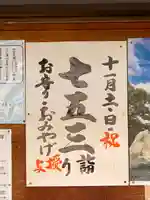 十一月土・日・祝
七五三詣り
お守り・おみやげ
授与